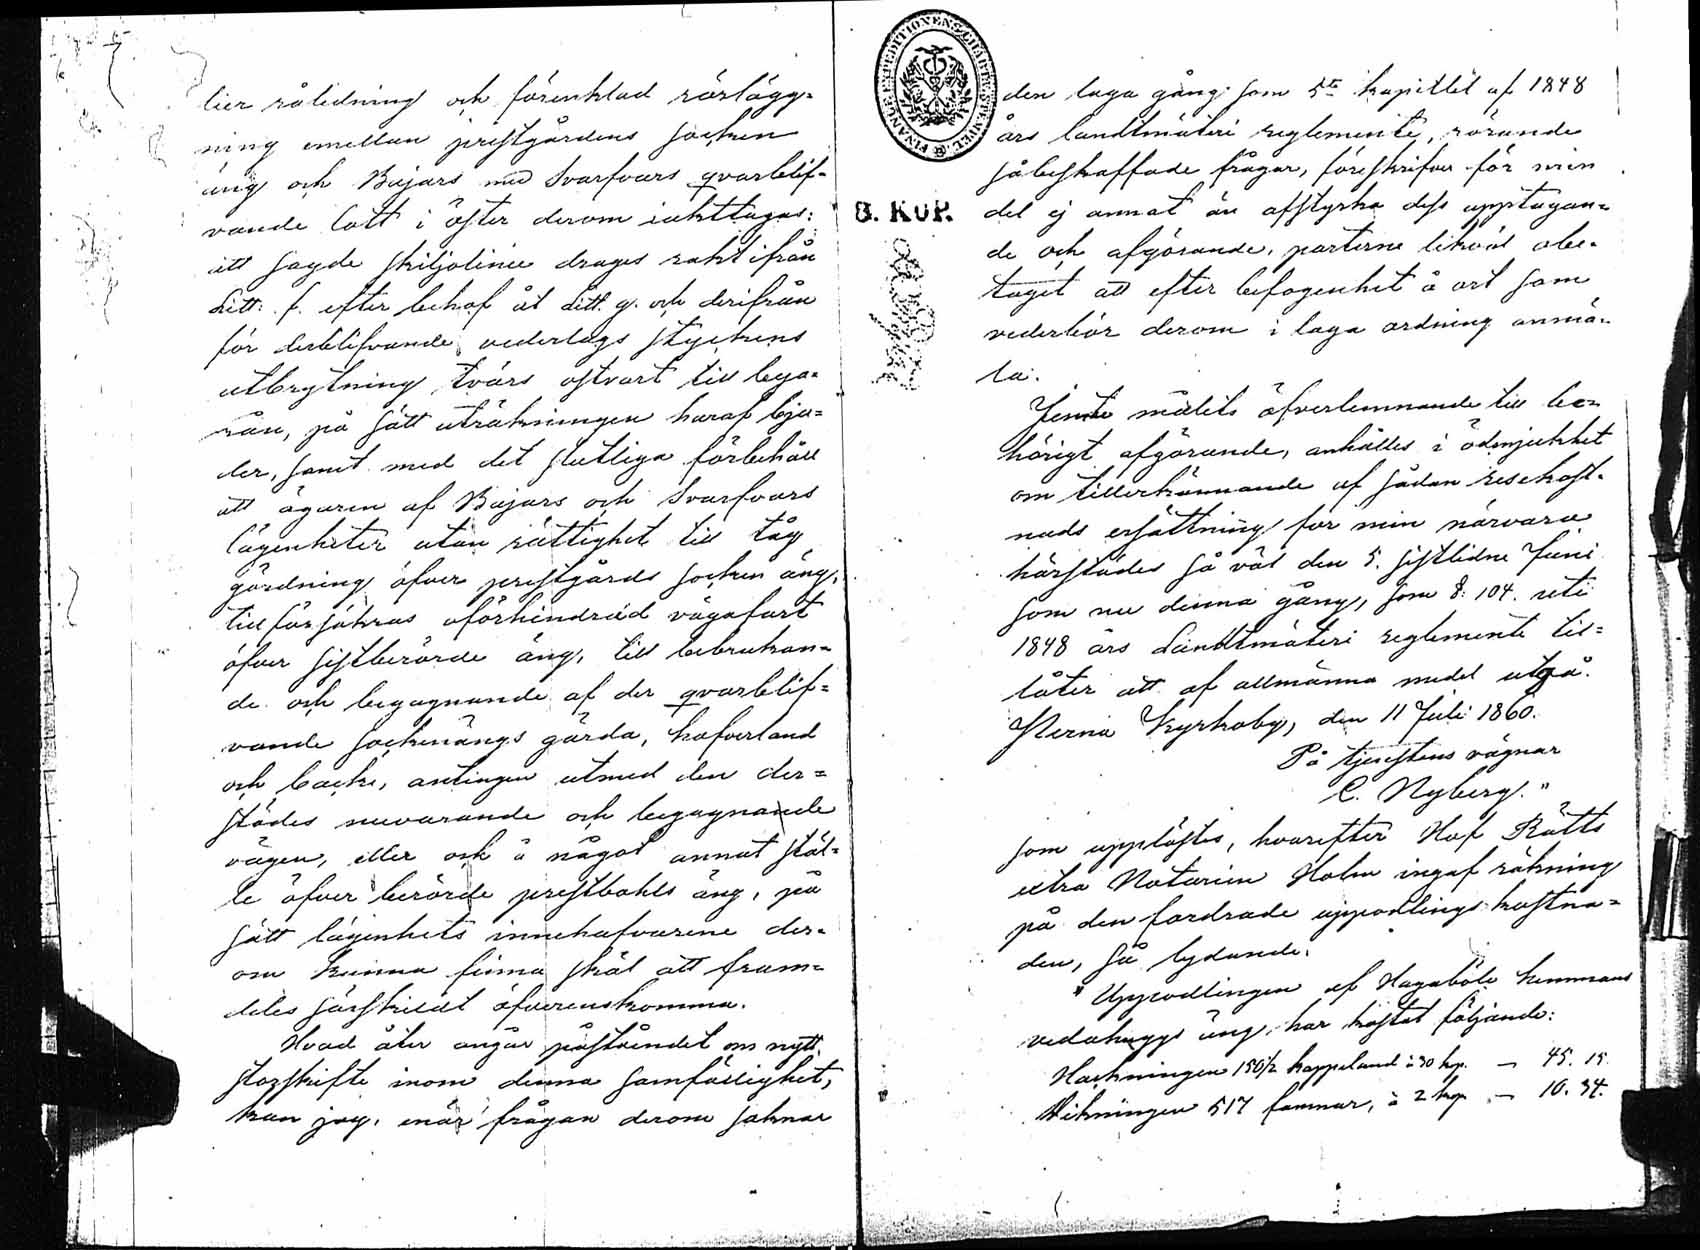 lier råledning och förenklad rörlägg-
ning emellan prestgårdens socken
äng och Bujars med Svarfvars qvarblif-
vande lott i öfter derom iakttagas:
att sagde skiljolinie drages rakt ifrån
Litt: f. efter behof åt Litt. g. och derifrån
för derblifvande vederlags styckens
utbrytning, tvärs ostvart till bya-
rån, på sätt uträkningen haraf bju-
der, samt med det slutliga förbehåll
att ägaren af Bujars och Svarfvars
lägenheter utan rättighet till tåg
gärdning öfver prestgårds socken äng,
tillförsäkras oförhindrad vägafart
öfver sistberörde äng, till bebrukan-
de och begagnande af der qvarblif-
vande sockenängs gärda, hafverland
och backe, antingen utmed den der-
städes nuvarande och begagnande
vägen, eller och å något annat stäl-
le öfver berörde prestbohls äng, på
sätt lägenhets innehafvarene der-
om kunna finna skäl att fram-
deles särskildt öfverenskomma.
Hvad åter angår påståendet om nytt
storskifte inom denna samfällighet,
kan jag, enär frågan derom saknar
FINANCE EXPEDITIONENS CHARTÆ STEMPEL
8. KOP.
den laga gång som 5te kapitlet af 1848
års landtmäteri reglemente, rörande
såbeskaffade frågor, föreskrifver för min
del ej annat än afstyrka dess upptagan-
de och afgörande, parterne likväl obe-
taget att efter befogenhet å ort som
vederbör derom i laga ordning anmä-
la.
Jemte målets öfverlemnande till be-
hörigt afgörande, anhålles i ödmjukhet
om tillerkännande af sådan resekost-
nads ersättning för min närvaro
härstädes så väl den 5. sistlidne Juni
som nu denna gång, som §: 104. uti
1848 års Landtmäteri reglemente til-
låter att af allmänna medel utgå.
Perno Kyrkoby, den 11 Juli 1860.
På tjenstens vägnar
C. Nyberg."
som upplästes, hvarefter Hof Rätts
extra Notarien Holm ingaf räkning
på den fordrade uppodlings kostna-
den, så lydande:
"Uppodlingen af Hagaböle hemmans
vedahuggs äng, har kostat följande:
Hackningen 150½ kappeland à 30 kop. — 45. 15.
Dikningen 517 famnar, à 2 kop. — 10. 34.